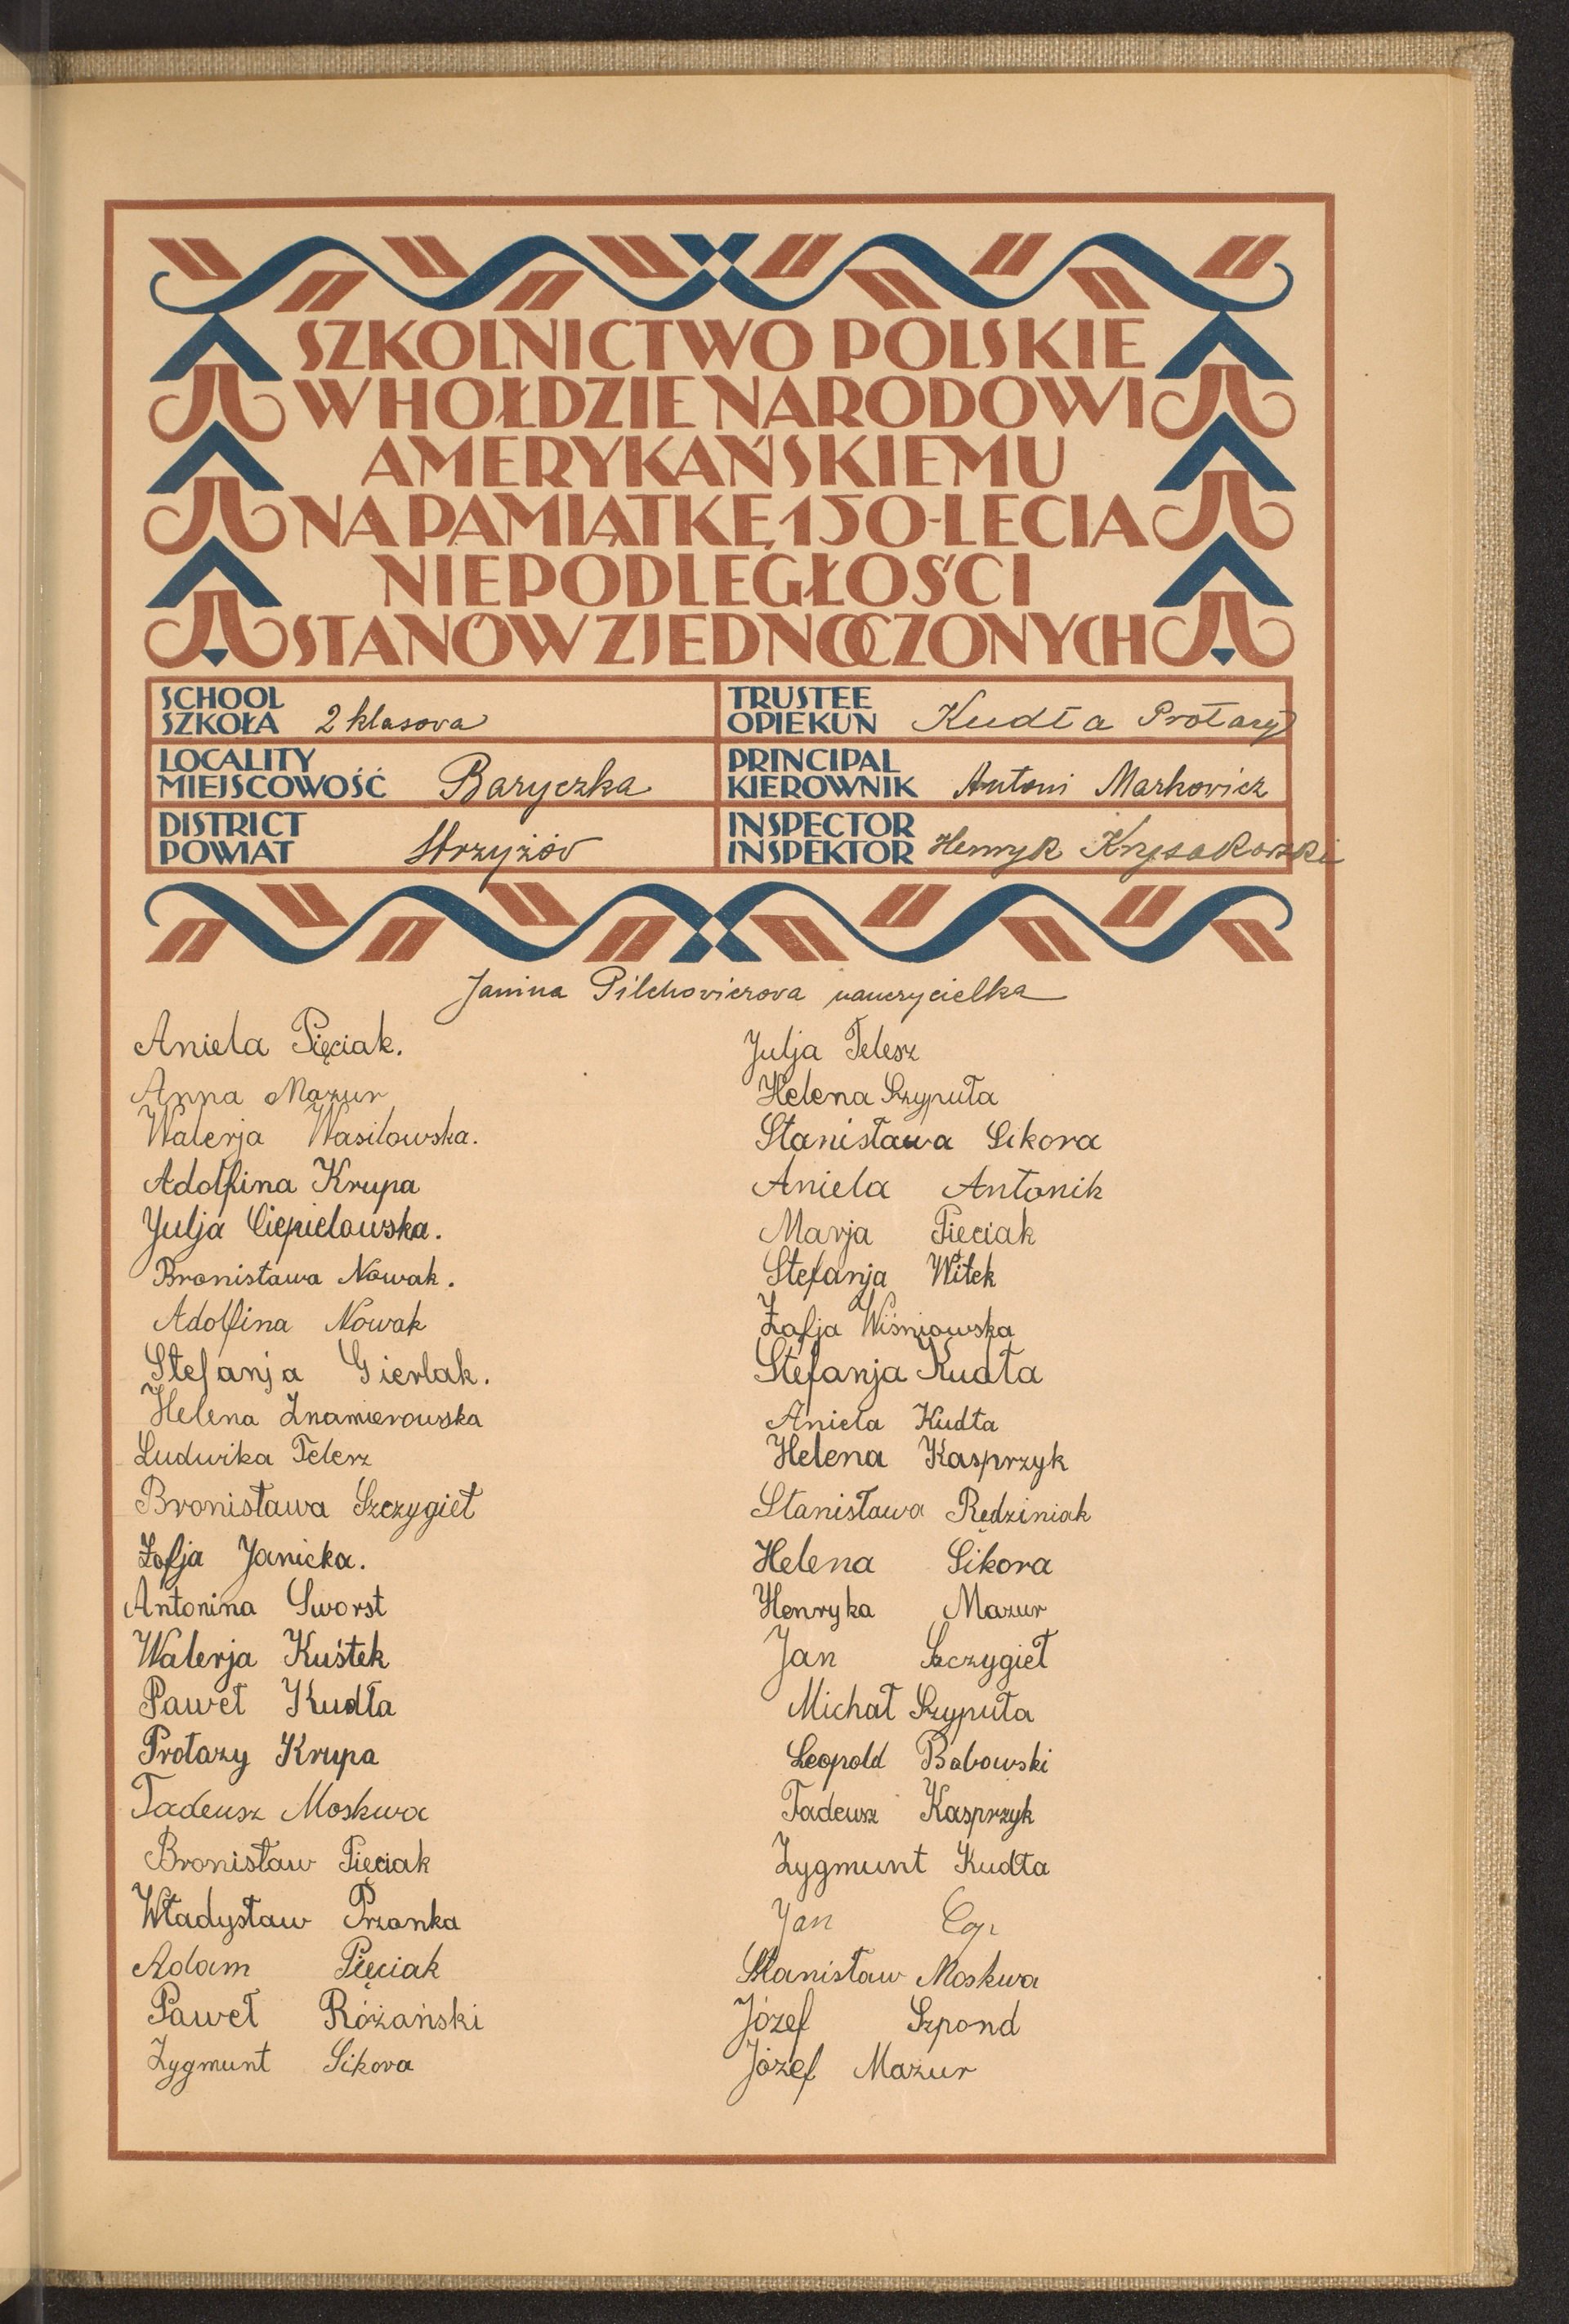 SZKOLNICTWO POLSKIE
W HOŁDZIE NARODOWI
AMERYKAŃSKIEMU
NA PAMIĄTKĘ 150-LECIA
NIEPODLEGŁOŚCI
STANÓW ZJEDNOCZONYCH
SCHOOL
SZKOŁA 2 klasova
TRUSTEE
OPIEKUN Kudła Protazy
LOCALITY
MIEJSCOWOŚĆ Baryczka
PRINCIPAL
KIEROWNIK Antoni Markovicz
DISTRICT
POWIAT Strzyżóv
INSPECTOR
INSPEKTOR Henryk
Janina Pilchoviczova nauczycielka
Aniela Pięciak.
Anna Mazur
Walerja Wasilowska.
Adolfina Krupa
Julja Ciepielowska.
Bronisława Nowak.
Adolfina Nowak
Stefanja Gierlak.
Helena Znamierowska
Ludwika Telesz
Bronisława Szczygieł
Zofja Janicka.
Antonina Sworst
Walerja Kuśtek
Paweł Kudła
Protazy Krupa
Tadeusz Moskwa
Bronisław Pięciak
Władysław Przonka
Adam Pięciak
Paweł Różański
Zygmunt Sikora
Julja Telesz
Helena Szypuła
Stanisława Sikora
Aniela Antonik
Marja Pięciak
Stefanja Witek
Zofja Wiśniowska
Stefanja Kudła
Aniela Kudła
Helena Kasprzyk
Stanisława Rędziniak
Helena Sikora
Henryka Mazur
Jan Szczygieł
Michał Szypuła
Leopold Bobowski
Tadeusz Kasprzyk
Zygmunt Kudła
Jan
Stanisław Moskwa
Józef Szpond
Józef Mazur